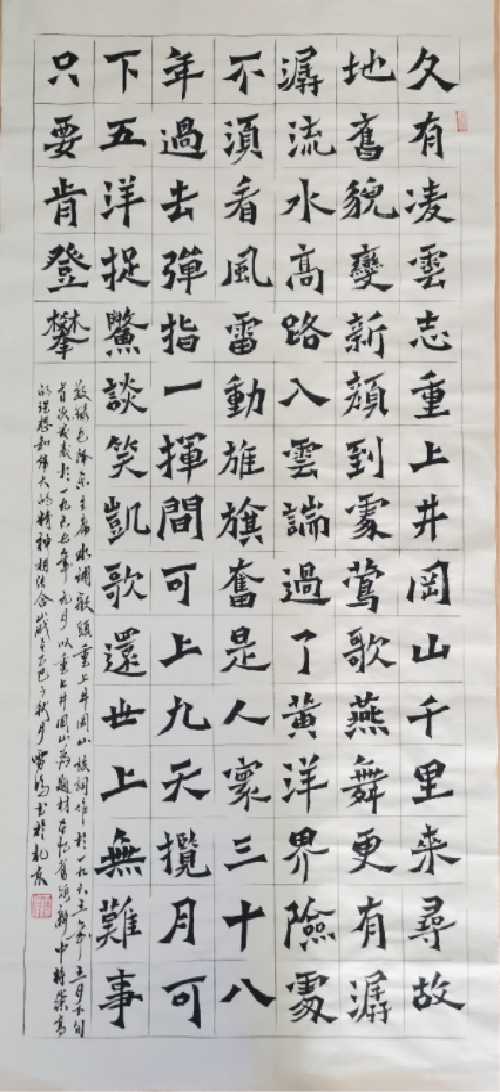 久有凌雲志重上井岡山千里来尋故
地舊貌變新顔到處鶯歌燕舞更有潺
潺流水高路入雲端過了黃洋界險處
不須看風雷動旌旗奮是人寰三十八
年過去彈指一揮間可上九天攬月可
下五洋捉鱉談笑凱歌還世上無難事
只要肯登攀
敬録毛澤東主席水調歌頭重上井岡山該詞作於一九六五年五月下旬
首次發表於一九七六年元月以重上井岡山為題材中將崇高
的理想和偉大的精神相結合歲在乙巳之秋月書於北京